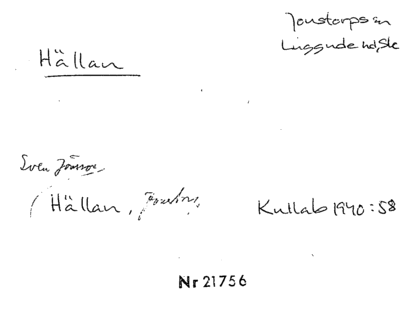 Jonstorps sn
Luggude hd, Sk
Hällan
Sven Jönsson
(Hällan,
Kullab 1940:58
Nr 21756